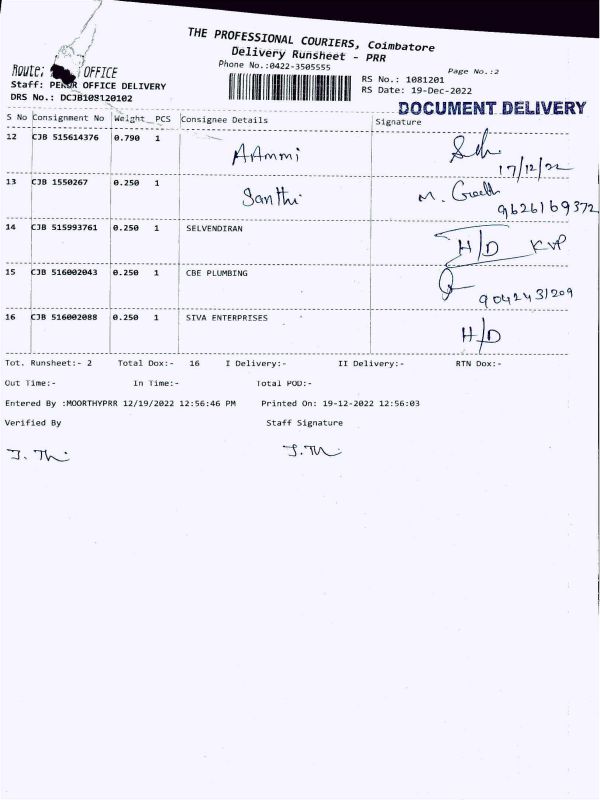 THE PROFESSIONAL COURIERS, Coimbatore
Delivery Runsheet - PRR
Phone No.:0422-3505555
Page No.:2
Route: OFFICE
Staff: PERUR OFFICE DELIVERY
DRS No.: DCJB108120102
RS No.: 1081201
RS Date: 19-Dec-2022
DOCUMENT DELIVERY
S No Consignment No Weight PCS Consignee Details Signature
12 CJB 515614376 0.790 1 AAmmi
17/12/22
13 CJB 1550267 0.250 1 Santhi M.
9626169372
14 CJB 515993761 0.250 1 SELVENDIRAN H/D KVP
15 CJB 516002043 0.250 1 CBE PLUMBING
9042431209
16 CJB 516002088 0.250 1 SIVA ENTERPRISES H/D
Tot. Runsheet:- 2 Total Dox:- 16 I Delivery:- II Delivery:- RTN Dox:-
Out Time:- In Time:- Total POD:-
Entered By :MOORTHYPRR 12/19/2022 12:56:46 PM Printed On: 19-12-2022 12:56:03
Verified By Staff Signature